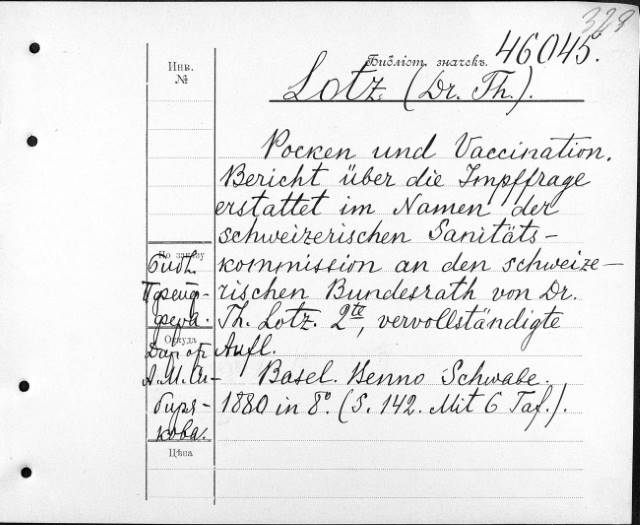 329
Библіот. значекъ. 46045.
Инв.
№
Lotz. (Dr. Th.).
Pocken und Vaccination.
Bericht über die Impffrage
erstattet im Namen der
schweizerischen Sanitäts-
kommission an den schweize-
rischen Bundesrath von Dr.
Th. Lotz. 2te, vervollständigte
Aufl.
Basel. Benno Schwabe.
1880 in 8°. (S. 142. Mit 6 Taf.).
По заказу
Библ.
Пфейф-
фера.
Откуда
Дар от
А.М. Си-
биря-
кова.
Цѣна